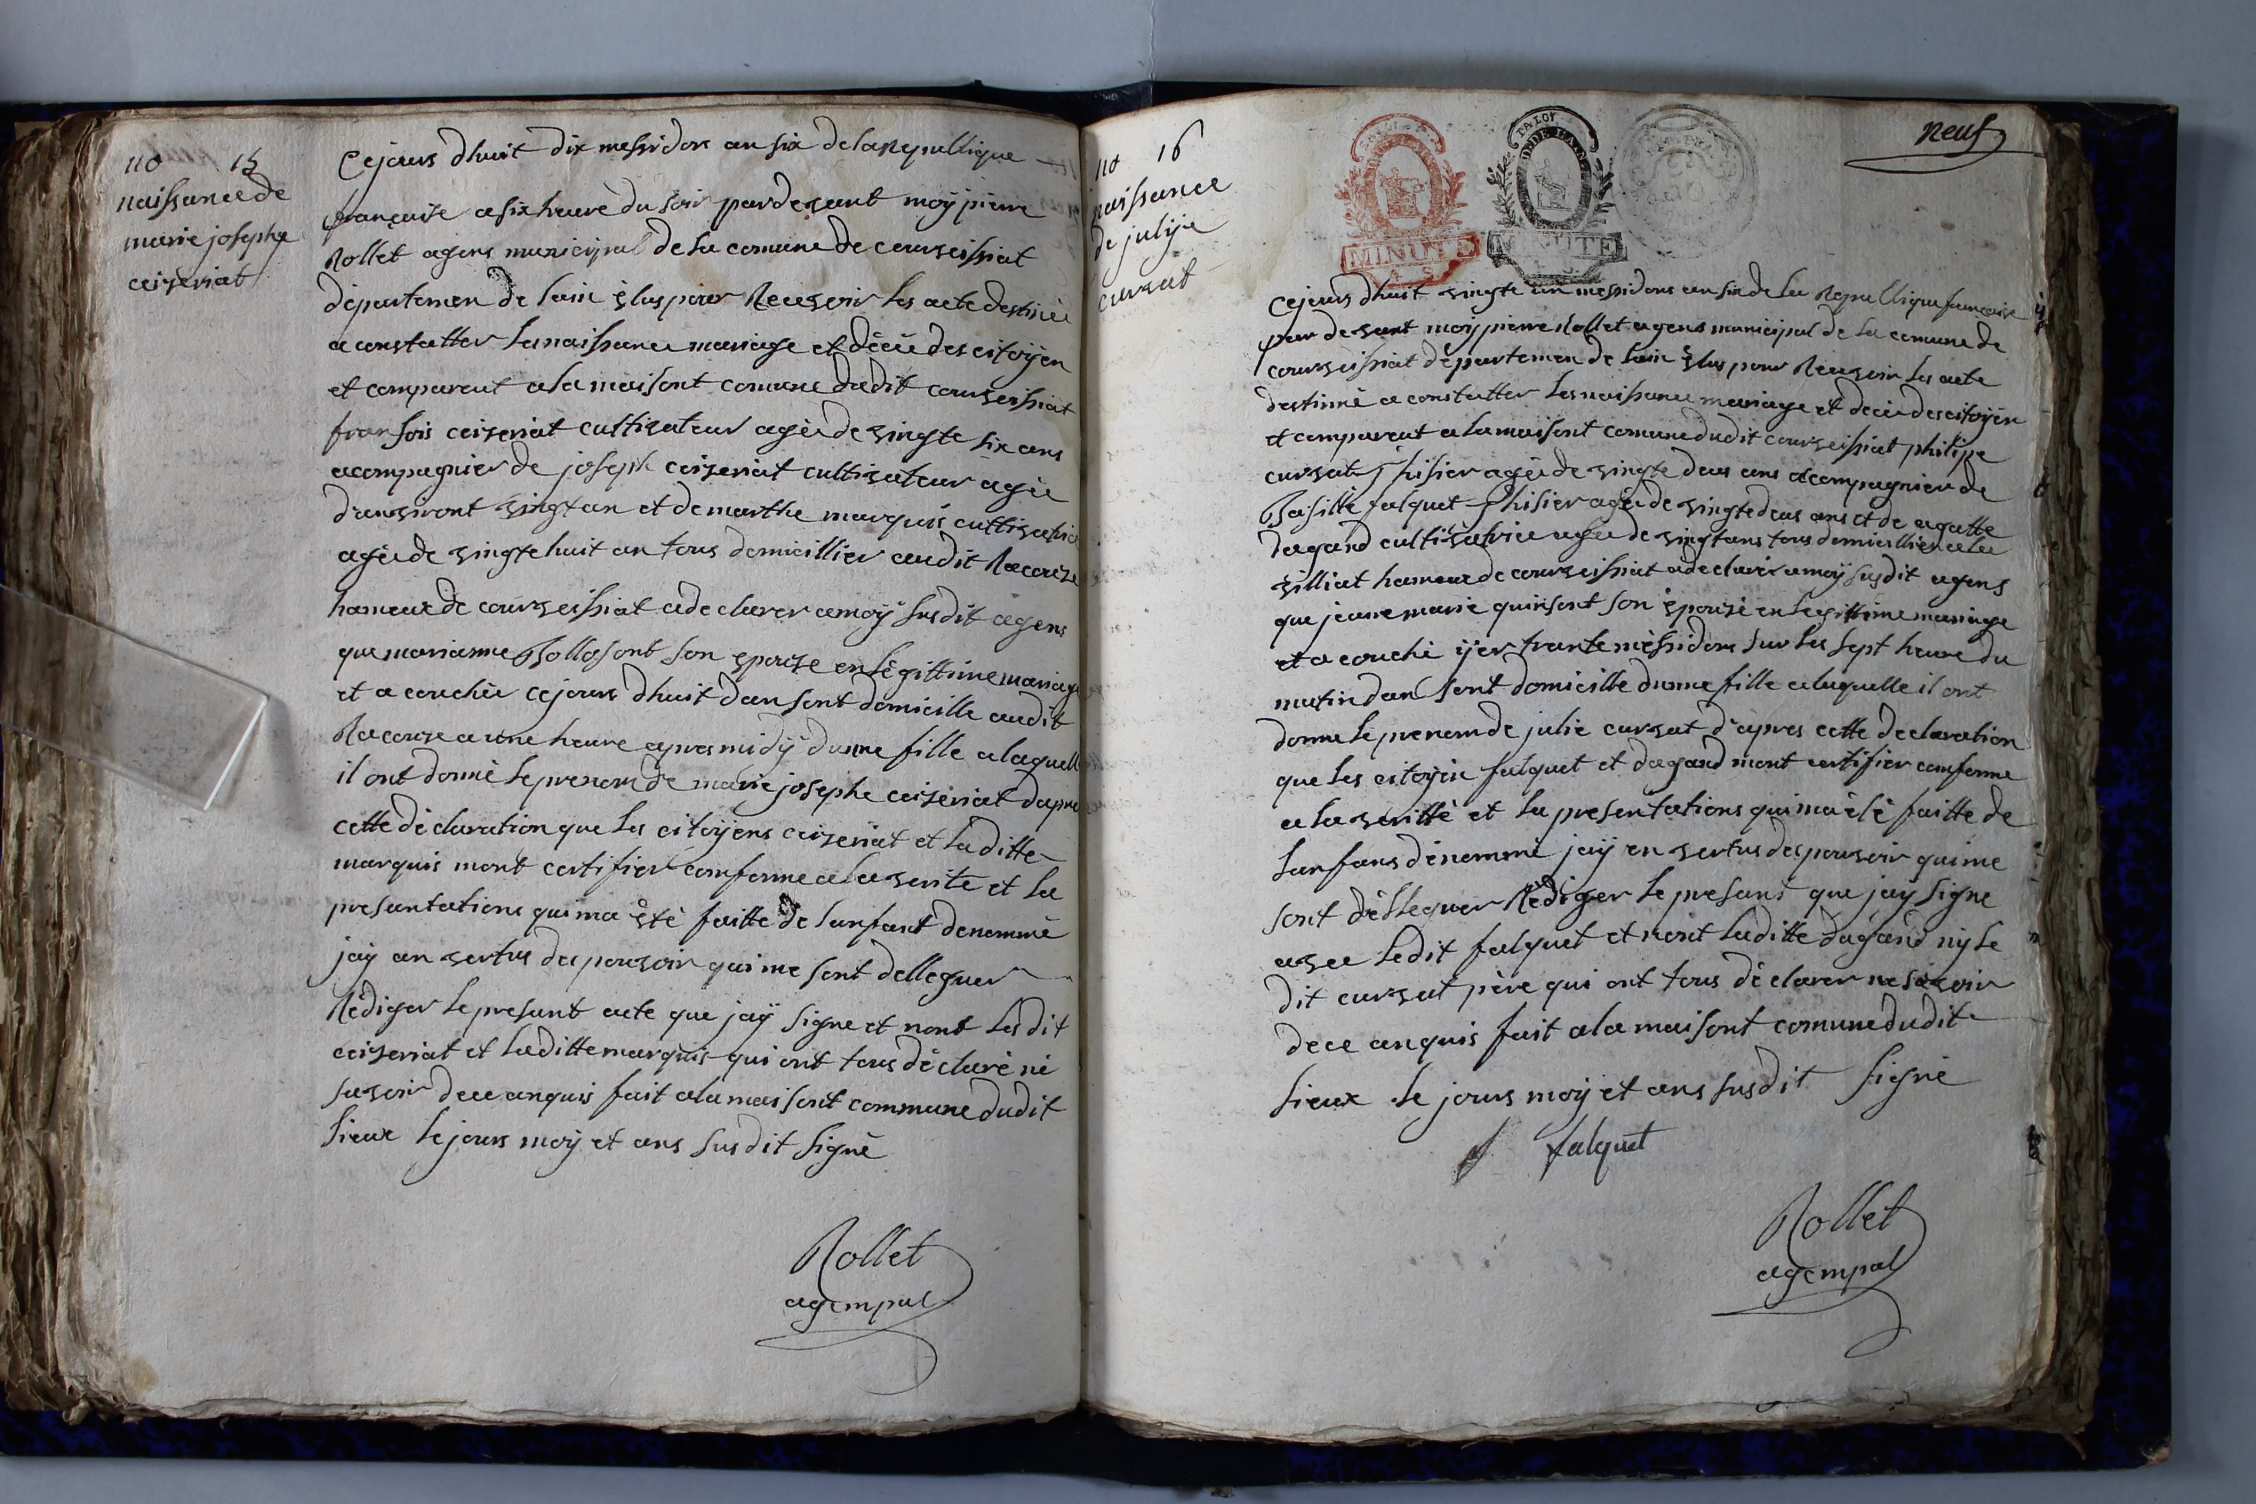 no 15
naissance de
marie josephe
ceizeriat
Cejours dhuit dix messidors an six de la Republique
françaize a six heure du soir par devant moÿ pierre
Rollet agens municipal de la comune de courveissiat
départemen de lain élus pour Recevoir les acte destinéé
a constatter la naissance mariage et décéé des citoÿen
et compareut a la maisont comune dudit courveissiat
fransois ceizeriat cultivateur agéé de vingte six ans
acompagnier de joseph ceizeriat cultivateur agéé
danviront vingt an et de marthe marquis cultivatrice
agéé de vingte huit an tous domicillier audit Racouze
hameux de courveissiat a declarer a moÿ susdit agens
que marianne Bollasont son epouze en légittime mariage
et a couchéé cejours dhuit dan sont domicille audit
Racouze a une heure apres midÿ dunne fille a laquelle
il ont donné le prenom de marie josephe ceizériat dapres
cette déclaration que les citoÿens ceizeriat et laditte
marquis mont certifier comforme a la verite et la
presantations qui ma été faitte de lanfant denommé
jaÿ an vertus des pouvoir qui me sont delleguer
Rédiger le presant acte que jaÿ signe et nont lesdit
ceizeriat et laditte marquis qui ont tous déclaré né
savoir de ce anquis fait a la maisont commune dudit
lieux le jours moÿ et ans susdit signé
Rollet
agempal
neuf
LA LOI
MINUTE
LA LOI
MINUTE
no 16
naissance
de julÿe
curvat
Cejours dhuit vingte un messidors an six de la Republique francaise
par devant moÿ pierre Rollet agens municipal de la comune de
courveissiat départemen de lain élus pour Recevoir les acte
destinné a constatter les naissance mariage et décéé des citoÿen
et comparent a la maisont comune dudit courveissiat philipe
curvat thisier agéé de vingte deus ans acompagnier de
Basille falquet thisier agéé de vingte deus ans et de agatte
dagand cultivatrice agéé de vingt ans tous domicillier a la
villiat hameux de courveissiat a declarer a moÿ susdit agens
que jeane marie quinsont son épouzé en légittime mariage
et a couché ÿer trante méssidors sur les sept heure du
matin dan sont domicille dunne fille a laquelle il ont
donne le prenom de julie curvat d'apres cette declaration
que les citoÿen falquet et dagand mont certifier comforme
a la veritté et la presentations qui ma été faitte de
lanfans dénommé jaÿ en vertus des pouvoir qui me
sont délleguer Rédiger le presans que jaÿ signe
avec ledit falquet et nont laditte dagand nÿ le
dit curvat père qui ont tous déclarer ne savoir
de ce anquis fait a la maisont comune dudit
lieux le jours moÿ et ans susdit signé
falquet
Rollet
agempal